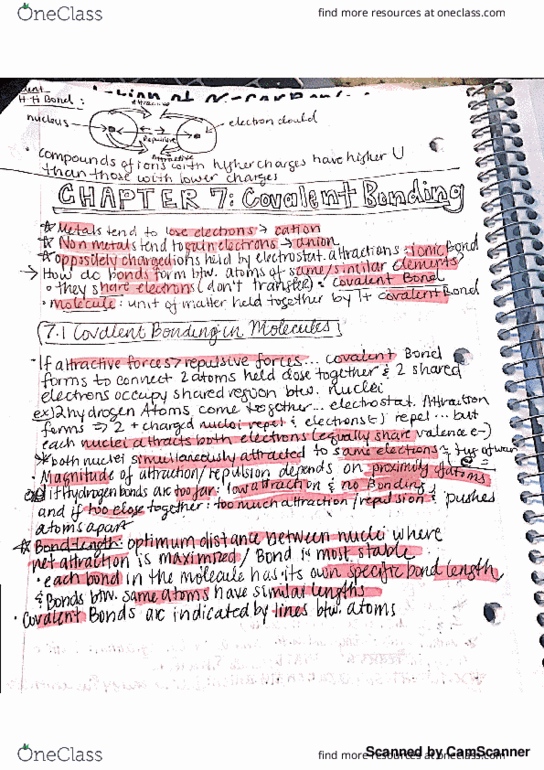 OneClass
find more resources at oneclass.com
H-H Bond:
nucleus
attractive
electron cloud
Repulsive
Attractive
• compounds of ions with higher charges have higher U
than those with lower charges
CHAPTER 7: Covalent Bonding
☆ Metals tend to lose electrons → cation
☆ Non metals tend to gain electrons → anion
☆ oppositely charged ions held by electrostat. attractions : ionic Bond
→ How do bonds form btw. atoms of same/similar elements?
• they share electrons (don't transfer) • covalent Bond
• molecule : unit of matter held together by 1+ covalent Bond
7.1 Covalent Bonding in Molecules
• If attractive forces > repulsive forces... covalent Bond
forms to connect 2 atoms held close together & 2 shared
electrons occupy shared region btw. nuclei
ex) 2 hydrogen Atoms come together... electrostat. Attraction
forms ⇒ 2 + charged nuclei repel & electrons (-) repel... but
each nuclei attracts both electrons (equally share valence e-)
* both nuclei simultaneously attracted to same electrons
• Magnitude of attraction/repulsion depends on proximity of atoms
if hydrogen bonds are too far: low attraction & no Bonding
and if too close together: too much attraction/repulsion & pushes
atoms apart
☆ Bond-length: optimum distance between nuclei where
net attraction is maximized / Bond is most stable
• each bond in the molecule has its own specific bond length
& Bonds btw. same atoms have similar lengths
• Covalent Bonds are indicated by lines btw. atoms
OneClass
find more resources at oneclass.com
Scanned by CamScanner